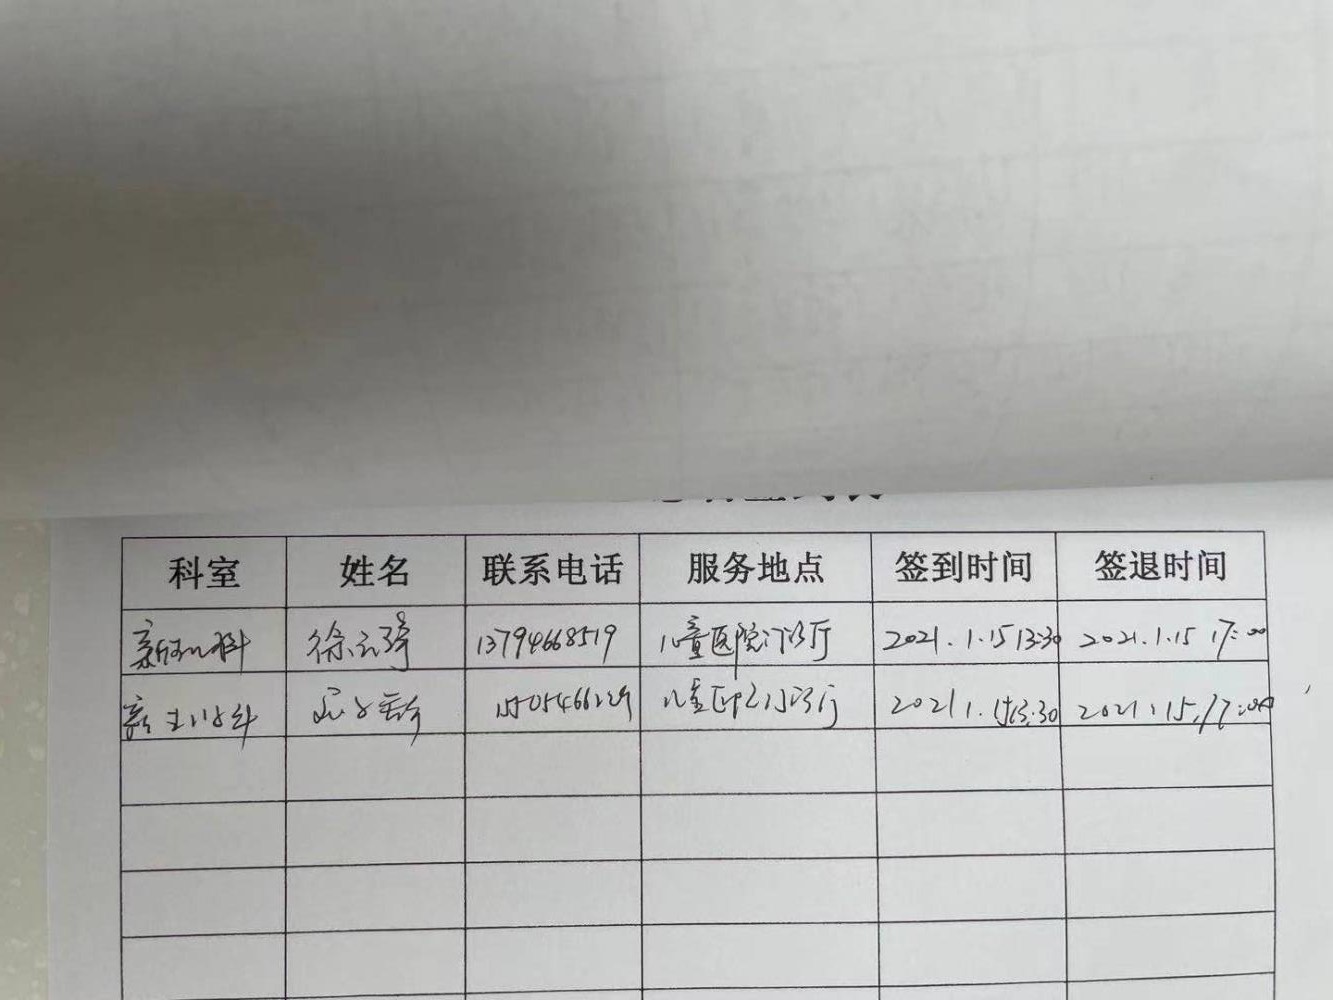 科室 姓名 联系电话 服务地点 签到时间 签退时间
新生儿科 徐云琦 13794668519 儿童医院门诊厅 2021.1.15 13:30 2021.1.15 17:00
新生儿科 儿童医院门诊厅 2021.1.15 13:30 2021.1.15.17:00